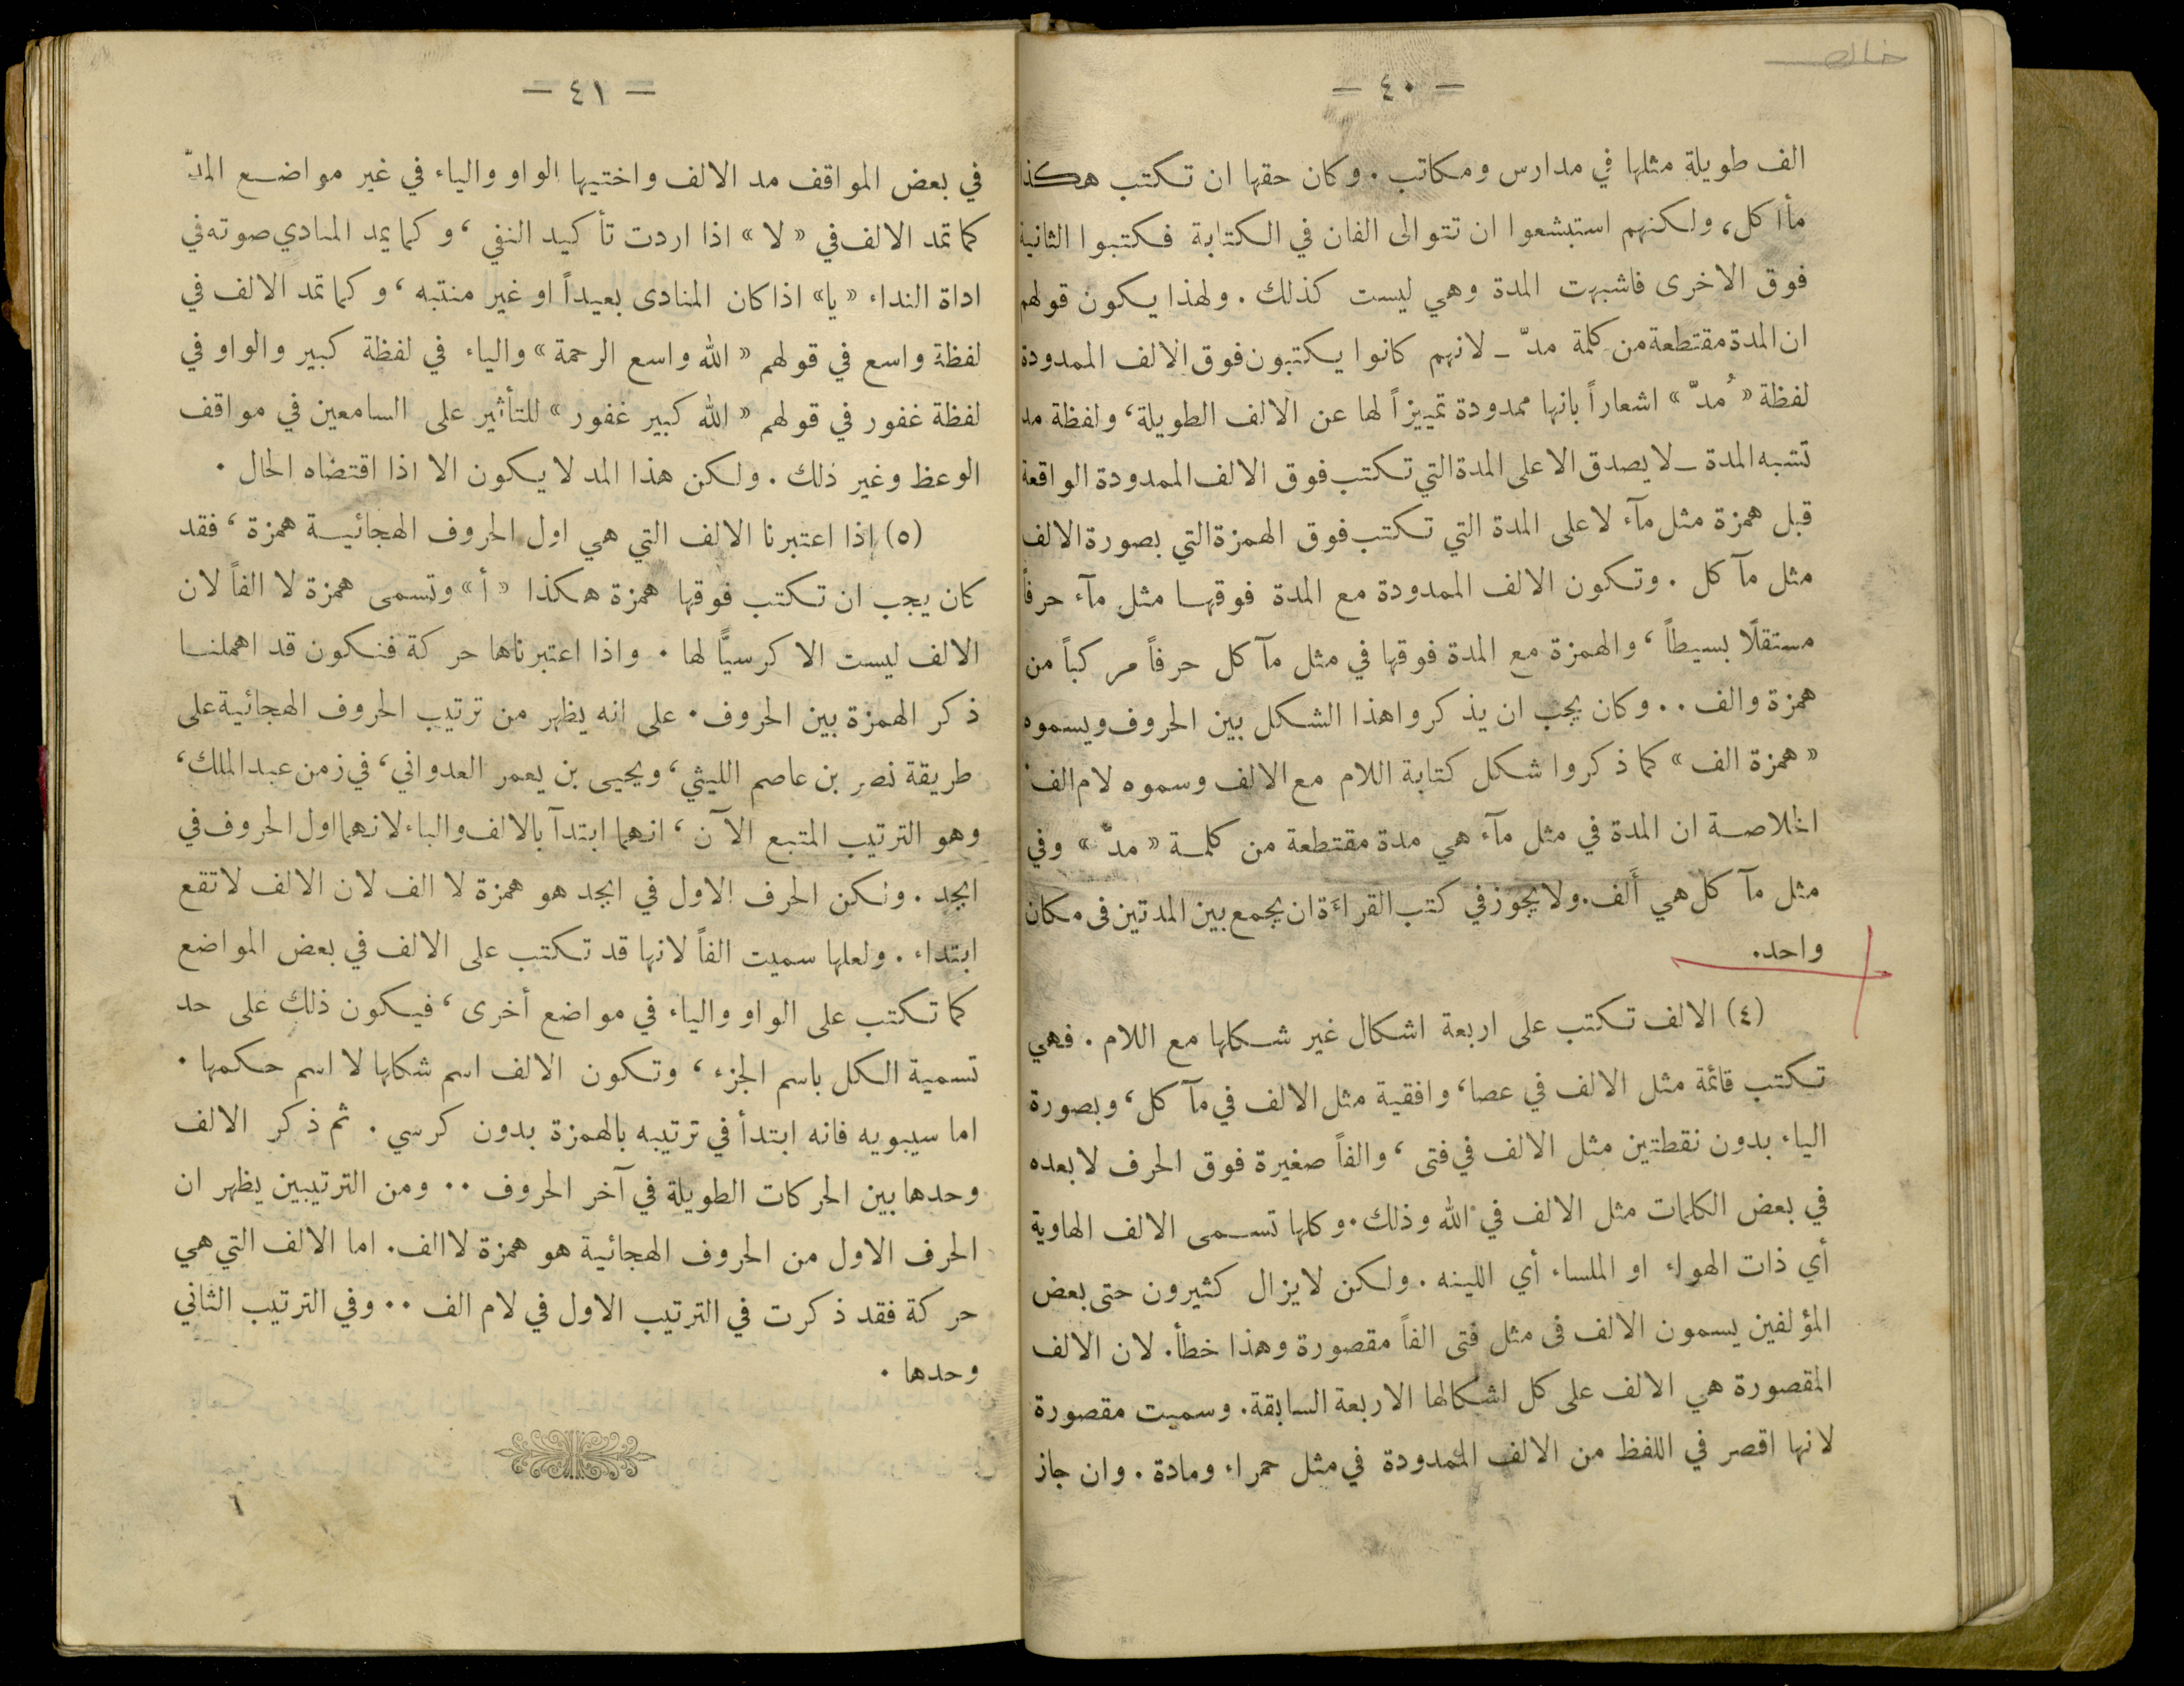 — ٤٠ —
الف طويلة مثلها في مدارس ومكاتب . وكان حقها ان تكتب هكذا
مأاكل، ولكنهم استبشعوا ان تتوالى الفان في الكتابة فكتبوا الثانية
فوق الاخرى فاشبهت المدة وهي ليست كذلك . ولهذا يكون قولهم
ان المدة مقتطعة من كلمة مدّ ــ لانهم كانوا يكتبون فوق الالف الممدودة
لفظة « مُدّ » اشعاراً بانها ممدودة تمييزاً لها عن الالف الطويلة، ولفظة مد
تشبه المدة ــ لا يصدق الا على المدة التي تكتب فوق الالف الممدودة الواقعة
قبل همزة مثل مآء لا على المدة التي تكتب فوق الهمزة التي بصورة الالف
مثل مآكل . وتكون الالف الممدودة مع المدة فوقها مثل مآء حرفاً
مستقلًا بسيطاً ، والهمزة مع المدة فوقها في مثل مآكل حرفاً مركباً من
همزة والف . . وكان يجب ان يذكروا هذا الشكل بين الحروف ويسموه
« همزة الف » كما ذكروا شكل كتابة اللام مع الالف وسموه لام الف .
الخلاصة ان المدة في مثل مآء هي مدة مقتطعة من كلمة « مدّ » وفي
مثل مآكل هي ألَف. ولا يجوز في كتب القراءَة ان يجمع بين المدتين فى مكان
واحد.
(٤) الالف تكتب على اربعة اشكال غير شكلها مع اللام . فهي
تكتب قائمة مثل الالف في عصا، وافقية مثل الالف في مآكل، وبصورة
الياء بدون نقطتين مثل الالف في فتى ، والفاً صغيرة فوق الحرف لا بعده
في بعض الكلمات مثل الالف في الله وذلك. وكلها تسمى الالف الهاوية
أي ذات الهواء او الملساء أي اللينه . ولكن لا يزال كثيرون حتى بعض
المؤلفين يسمون الالف فى مثل فتى الفاً مقصورة وهذا خطأ. لان الالف
المقصورة هي الالف على كل اشكالها الاربعة السابقة. وسميت مقصورة
لانها اقصر في اللفظ من الالف الممدودة في مثل حمراء ومادة . وان جاز
— ٤١ —
في بعض المواقف مد الالف واختيها الواو والياء في غير مواضع المدّ
كما تمد الالف في « لا » اذا اردت تأكيد النفي ، وكما يمد المنادي صوته في
اداة النداء « يا » اذا كان المنادى بعيداً او غير منتبه ، وكما تمد الالف في
لفظة واسع في قولهم « الله واسع الرحمة » والياء في لفظة كبير والواو في
لفظة غفور في قولهم « الله كبير غفور » للتأثير على السامعين في مواقف
الوعظ وغير ذلك . ولكن هذا المد لا يكون الا اذا اقتضاه الحال .
(٥) إذا اعتبرنا الالف التي هي اول الحروف الهجائية همزة ، فقد
كان يجب ان تكتب فوقها همزة هكذا « أ » وتسمى همزة لا الفاً لان
الالف ليست الا كرسيًّا لها . واذا اعتبرناها حركة فنكون قد اهملنا
ذكر الهمزة بين الحروف . على انه يظهر من ترتيب الحروف الهجائية على
طريقة نصر بن عاصم الليثي ، ويحيى بن يعمر العدواني، في زمن عبد الملك،
وهو الترتيب المتبع الآن ، انهما ابتدآ بالالف والباء لانهما اول الحروف في
ابجد . ولكن الحرف الاول في ابجد هو همزة لا الف لان الالف لا تقع
ابتداء . ولعلها سميت الفاً لانها قد تكتب على الالف في بعض المواضع
كما تكتب على الواو والياء في مواضع أخرى ، فيكون ذلك على حد
تسمية الكل باسم الجزء ، وتكون الالف اسم شكلها لا اسم حكمها .
اما سيبويه فانه ابتدأ في ترتيبه بالهمزة بدون كرسي . ثم ذكر الالف
وحدها بين الحركات الطويلة في آخر الحروف . . ومن الترتيبين يظهر ان
الحرف الاول من الحروف الهجائية هو همزة لا الف. اما الالف التي هي
حركة فقد ذكرت في الترتيب الاول في لام الف . . وفي الترتيب الثاني
وحدها .